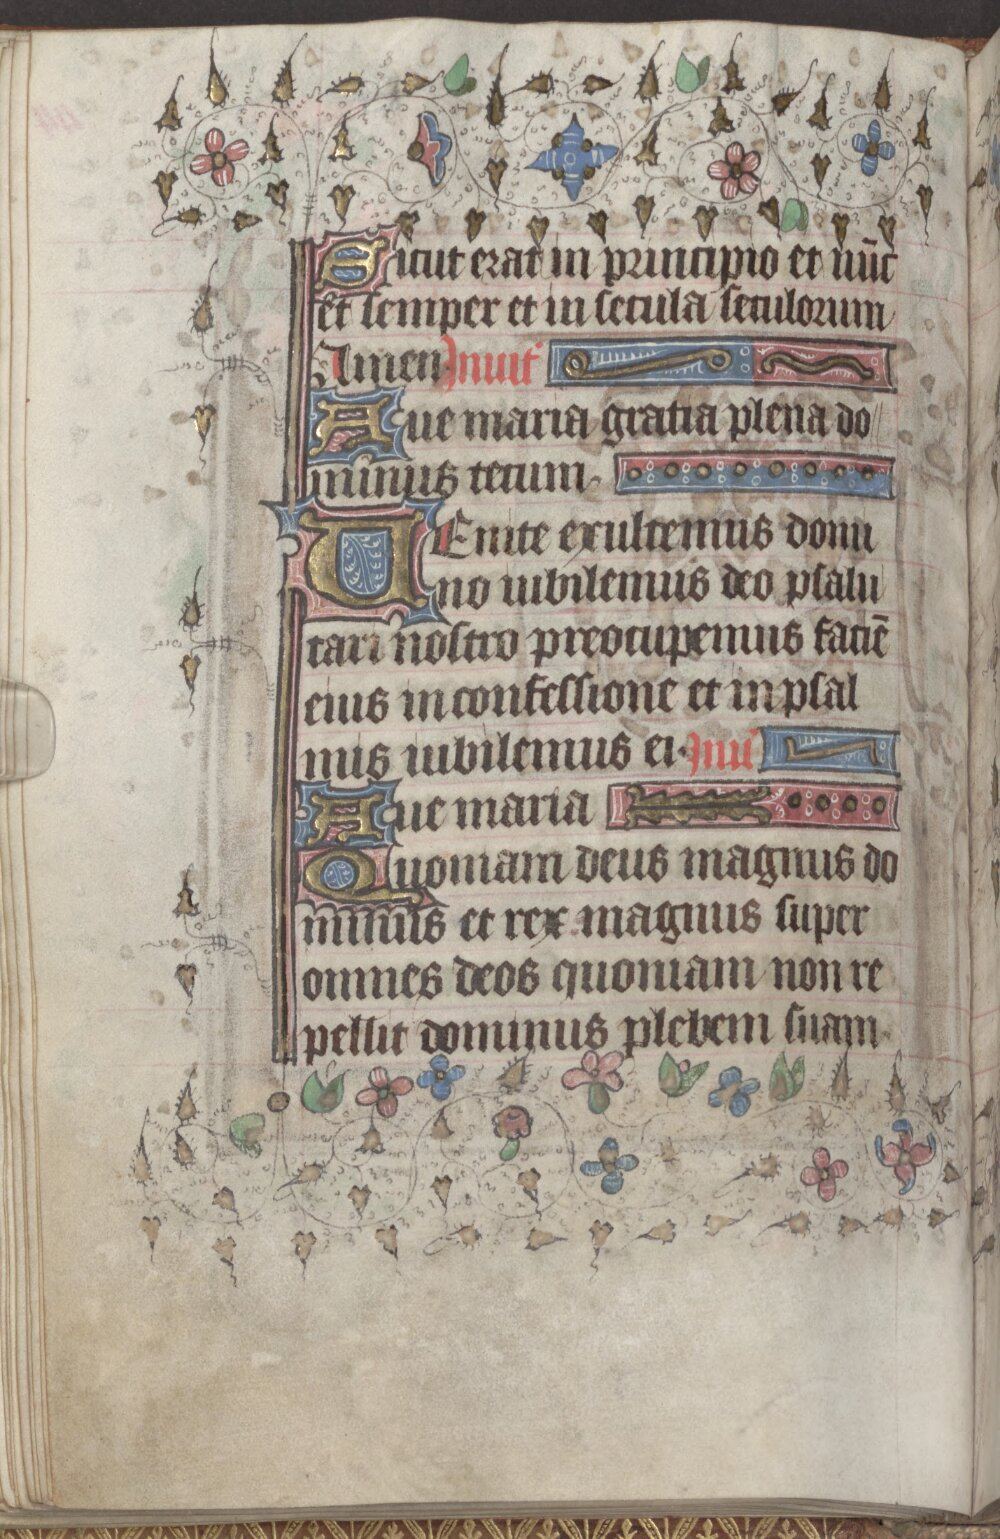 Sicut erat in principio et nūc
et semper et in secula seculorum
Amen Inuit
Aue maria gratia plena do
minus tecum
UEnite exultemus domi
no iubilemus deo psalu
tari nostro preocupemus faciē
eius in confessione et in psal
mis iubilemus ei Inui
Aue maria
Quoniam deus magnus do
minus et rex magnus super
omnes deos quoniam non re
pellit dominus plebem suam